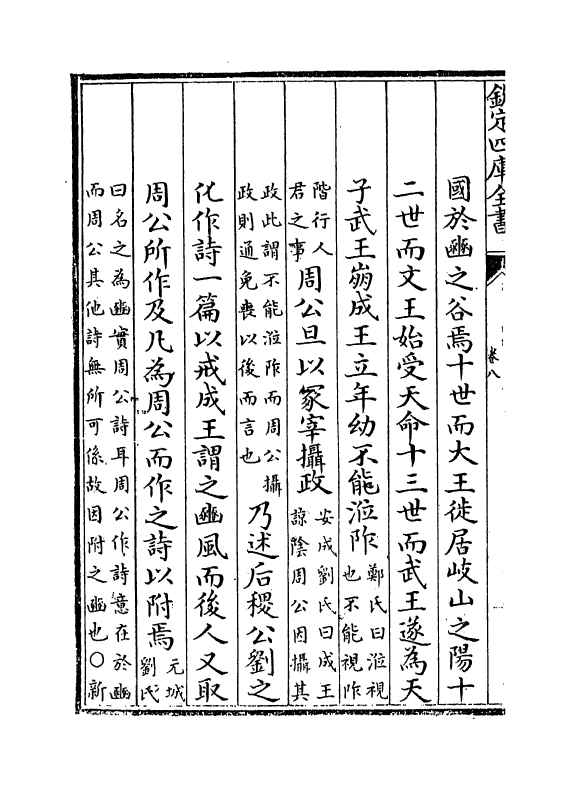 欽定四庫全書
卷八
國於豳之谷焉十世而大王徙居岐山之陽十
二世而文王始受天命十三世而武王遂為天
子武王崩成王立年幼不能涖阼
鄭氏曰涖視
也不能視阼
階行人
君之事
周公旦以冢宰攝政
安成劉氏曰成王
諒陰周公因攝其
政此謂不能涖阼而周公攝
政則通免喪以後而言也
乃述后稷公劉之
化作詩一篇以戒成王謂之豳風而後人又取
周公所作及凡為周公而作之詩以附焉
元城
劉氏
曰名之為豳實周公詩耳周公作詩意在於豳
而周公其他詩無所可係故因附之豳也○新